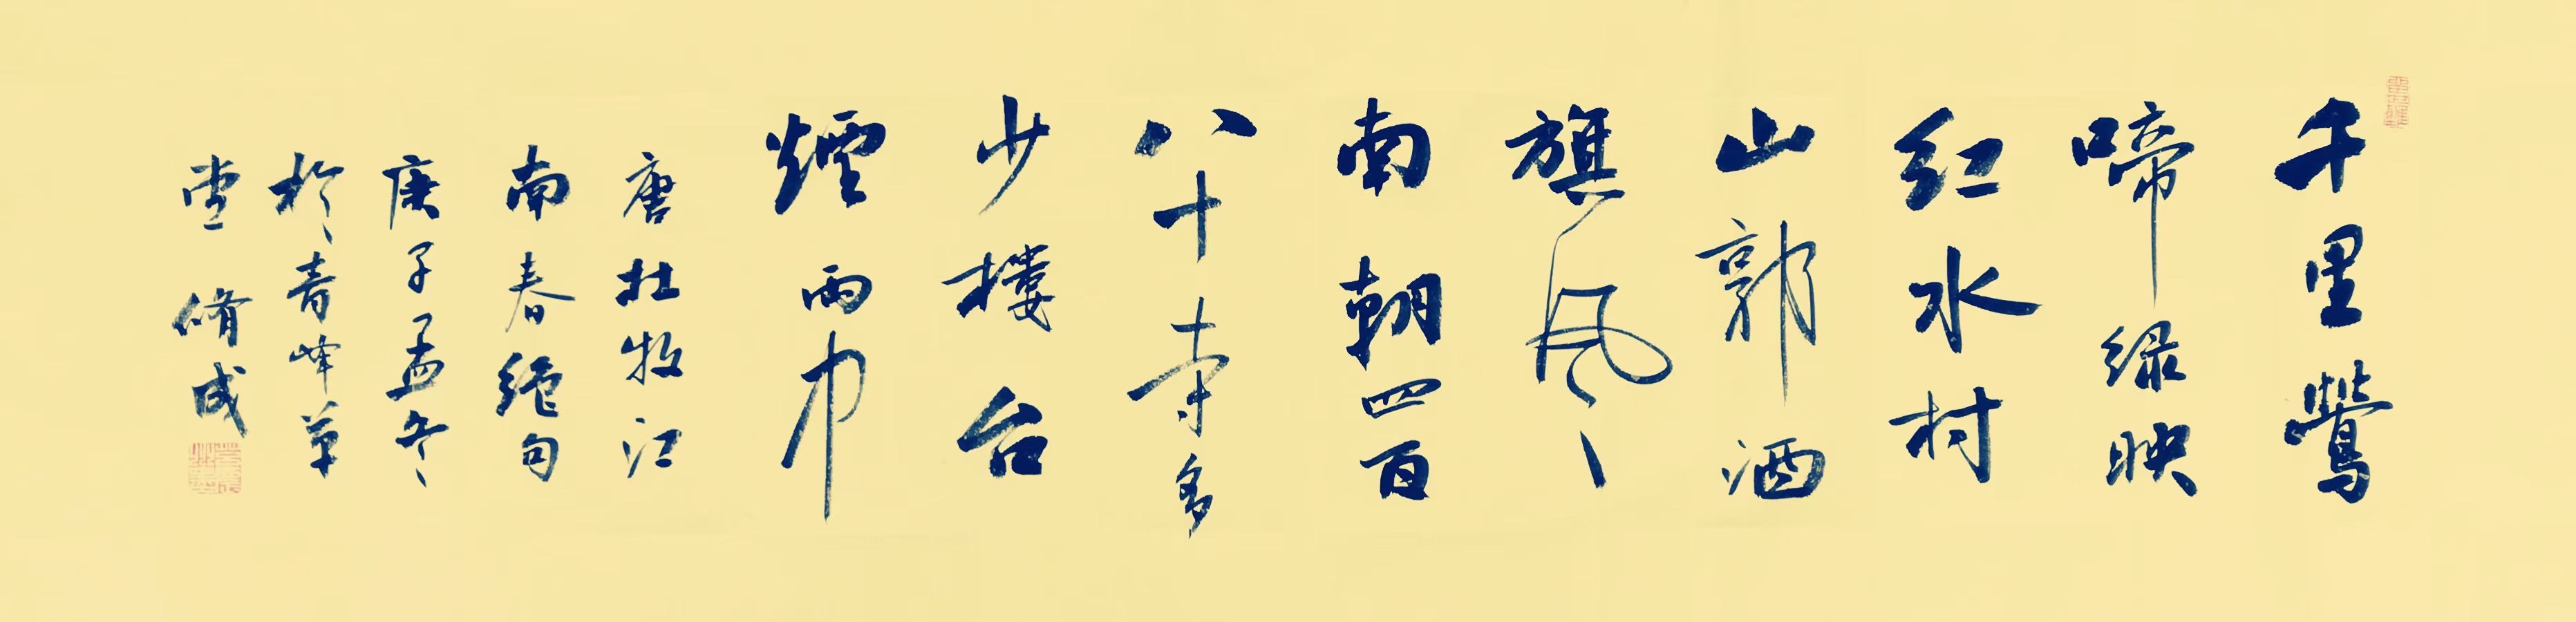 千里鶯
啼绿映
红水村
山郭酒
旗風丶
南朝四百
八十寺多
少樓台
煙雨中
唐杜牧江
南春絶句
庚子孟冬
於青峰草
堂脩成